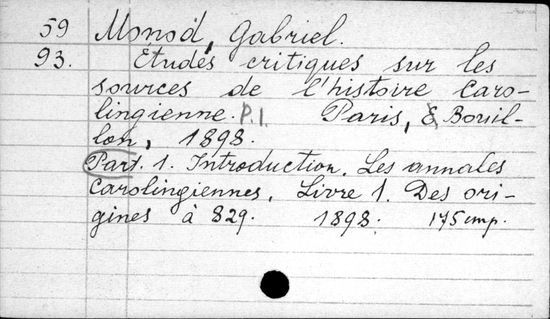 59 Monod, Gabriel.
93. Études critiques sur les
sources de l'histoire caro-
lingienne. P.1. Paris, E. Bouil-
lon, 1898.
Part. 1. Introduction. Les annales
carolingiennes. Livre 1. Des ori-
gines à 829. 1898. 175 cmp.